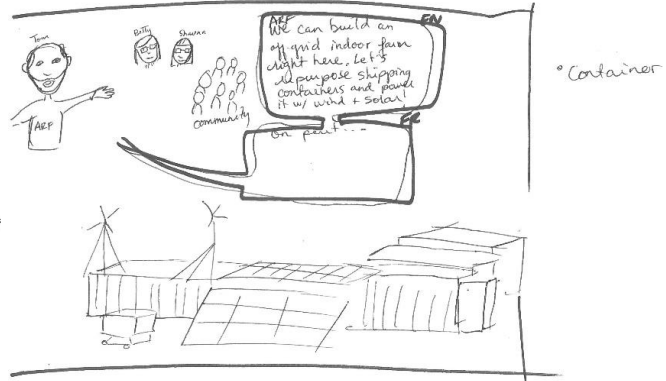 Tom
Betty
Shauna
ARF
Community
ARF
EN
We can build an
off grid indoor farm
right here. Let's
repurpose shipping
containers and power
it w/ wind + Solar!
FR
On peut...
• Container